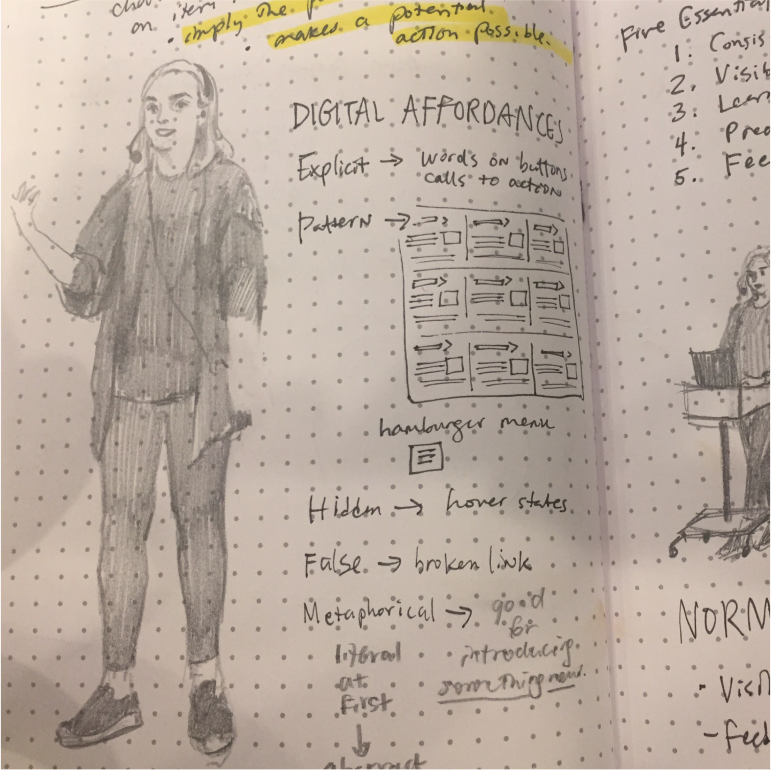 on item
simply the
makes a potential
action possible.
DIGITAL AFFORDANCES
Explicit → words on buttons
calls to action
Pattern →
hamburger menu
Hidden → hover states
False → broken link
Metaphorical → good
for
introducing
something new.
literal
at
First
↓
abstract
Five Essential
1.
2.
3.
4.
5.
NORM